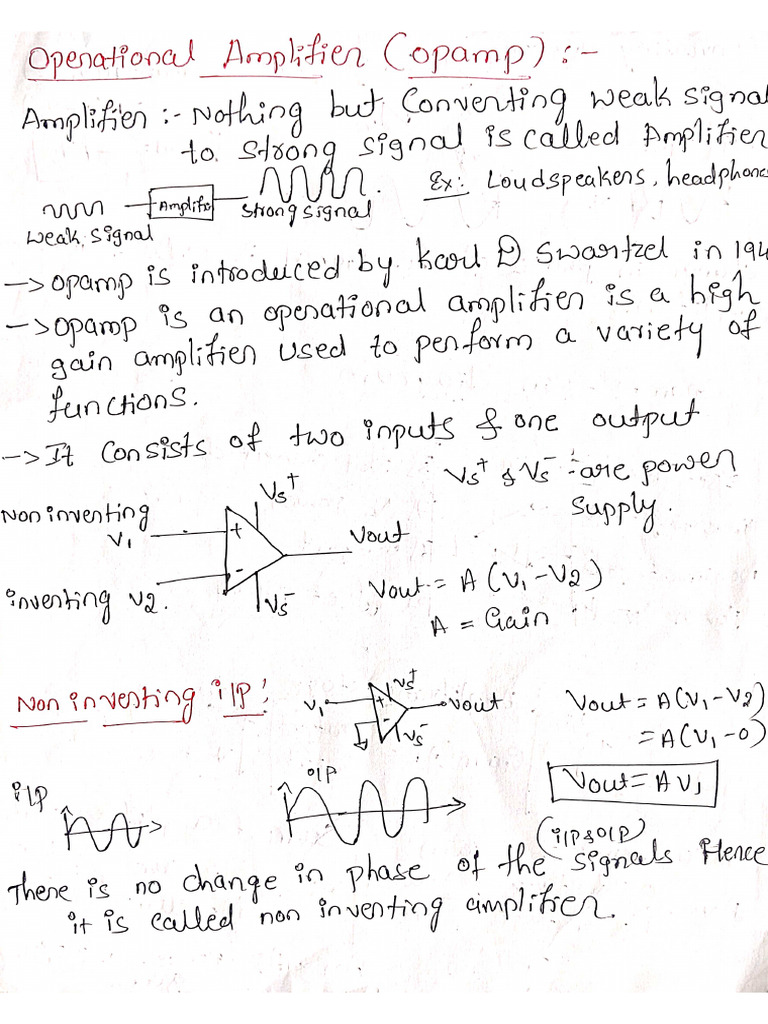 Operational Amplifier (opamp) :-
Amplifier :- Nothing but Converting weak signal
to strong signal is called Amplifier
Ex: Loudspeakers, headphone
Amplifier
strong signal
weak signal
-> opamp is introduced by Karl D Swartzel in 194
-> opamp is an operational amplifier is a high
gain amplifier used to perform a variety of
functions.
-> It consists of two inputs & one output
Vs+ & Vs- are power
supply.
Non inverting
V1
+
Vs+
Vout
inverting V2.
-
Vs-
Vout = A (V1-V2)
A = Gain
Non inverting i/p:
V1
+
-
Vs+
Vs-
Vout
Vout = A(V1-V2)
= A(V1-0)
Vout = A V1
i/p
o/p
(i/p & o/p)
There is no change in phase of the signals Hence
it is called non inverting amplifier.